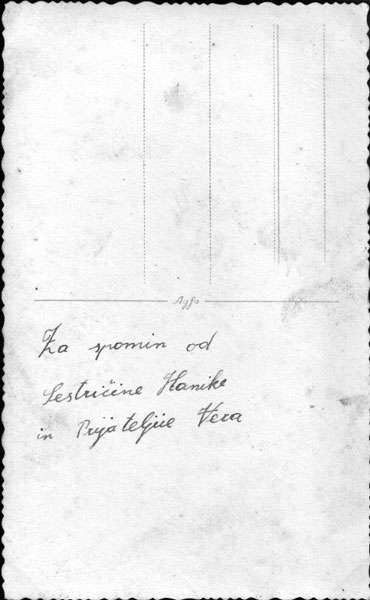 Agfa
Za spomin od
Sestrične Hanike
in Prijateljice Vera